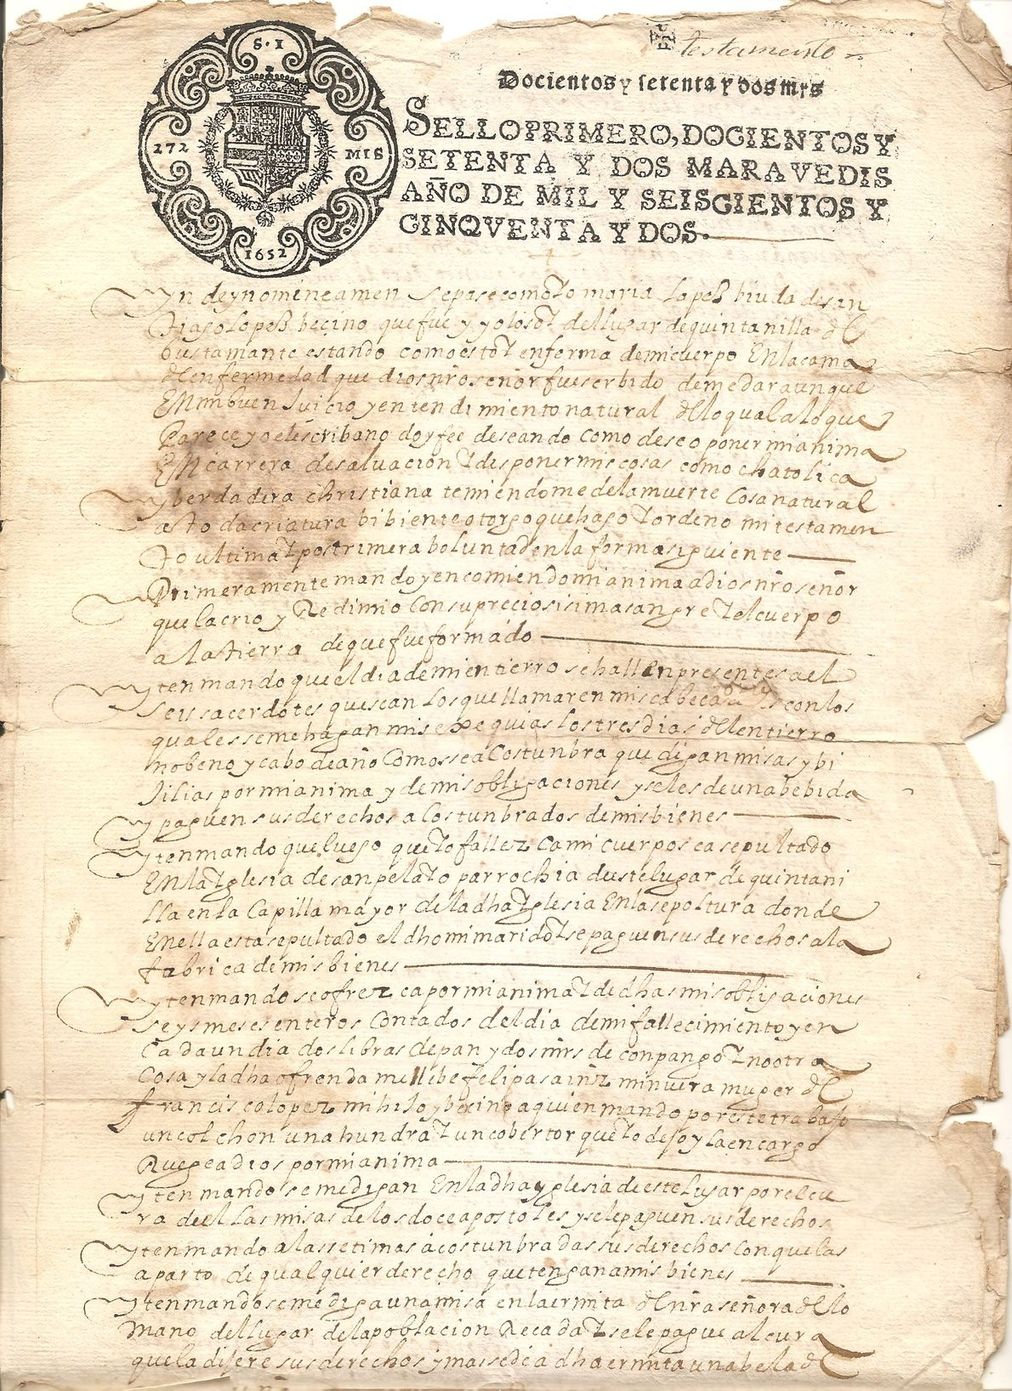 testamento
Docientos y setenta y dos mrs
S. I
272 MIS
1652
SELLO PRIMERO, DOCIENTOS Y
SETENTA Y DOS MARAVEDIS
AÑO DE MIL Y SEISCIENTOS Y
CINQVENTA Y DOS.
Yn dey nomine amen sepase como yo maria lopez biuda de san
tiago lopez becino que fue y yo lo soy del lugar de quintanilla de
bustamante estando como estoy enferma de mi cuerpo En la cama
de enfermedad que dios nro señor fue serbido de me dar aunque
En mi buen Juicio y entendimiento natural de lo qual a lo que
Parece yo el escribano doy fee deseando como deseo poner mi anima
En carrera de saluacion y disponer mis cosas como chatolica
y berdadera christiana temiendome de la muerte cosa natural
a toda criatura bibiente otorgo que hago y ordeno mi testamen
to ultima y postrimera boluntad en la forma siguiente
Primeramente mando y encomiendo mi anima a dios nro señor
que la crio y Redimio con su preciosisima sangre y el cuerpo
a la tierra de que fue formado
yten mando que el dia de mi entierro se hallen presentes a el
seis sacerdotes que sean los que llamaren mis con los
quales se me hagan mis exequias los tres dias del entierro
nobeno y cabo de año como sea costunbra que digan misas y bi
jilias por mi anima y de mis obligaciones y se les de una bebida
y paguen sus derechos acostunbrados de mis bienes
yten mando que luego que yo fallezca mi cuerpo sea sepultado
En la yglesia de san pelayo parrochia deste lugar de quintani
lla en la capilla mayor de la dha yglesia En la sepoltura donde
En ella esta sepultado el dho mi marido y se paguen sus derechos a la
fabrica de mis bienes
yten mando se ofrezca por mi anima y de dhas mis obligaciones
seys meses enteros contados del dia de mi fallecimiento y en
cada un dia dos libras de pan y dos mrs de conpango y no otra
cosa y la dha ofrenda me llebe felipa sainz mi nuera muger de
francisco lopez mi hijo y becino a quien mando por este trabajo
un colchon una y un cobertor que yo dejo y la encargo
Ruege a dios por mi anima
yten mando se me digan En la dha yglesia de este lugar por el cu
ra de el las misas de los doce apostoles y se le paguen sus derechos
yten mando a las setimas acostunbradas sus derechos con que las
aparto de qualquier derecho que tengan a mis bienes
yten mando se me diga una misa en la ermita de nra señora de lo
mano del lugar de la poblacion y se le pague al cura
que la dijere sus derechos y mas se de a dha ermita una bela de